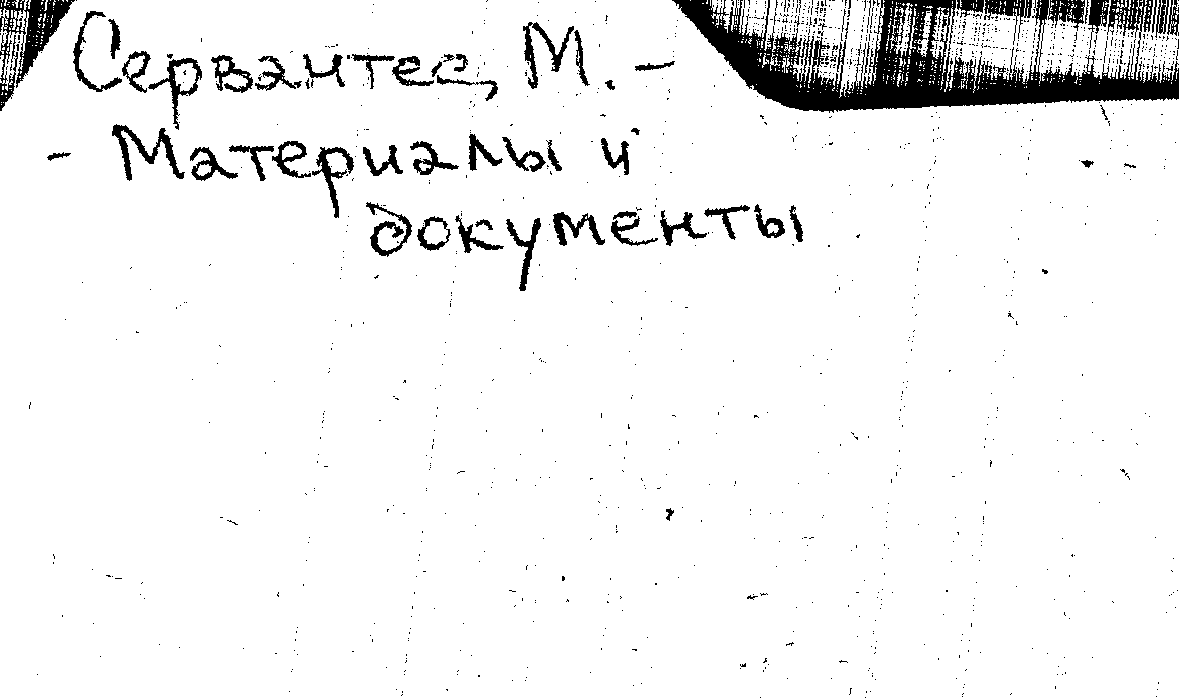 Сервантес, М. –
- Материалы и
документы